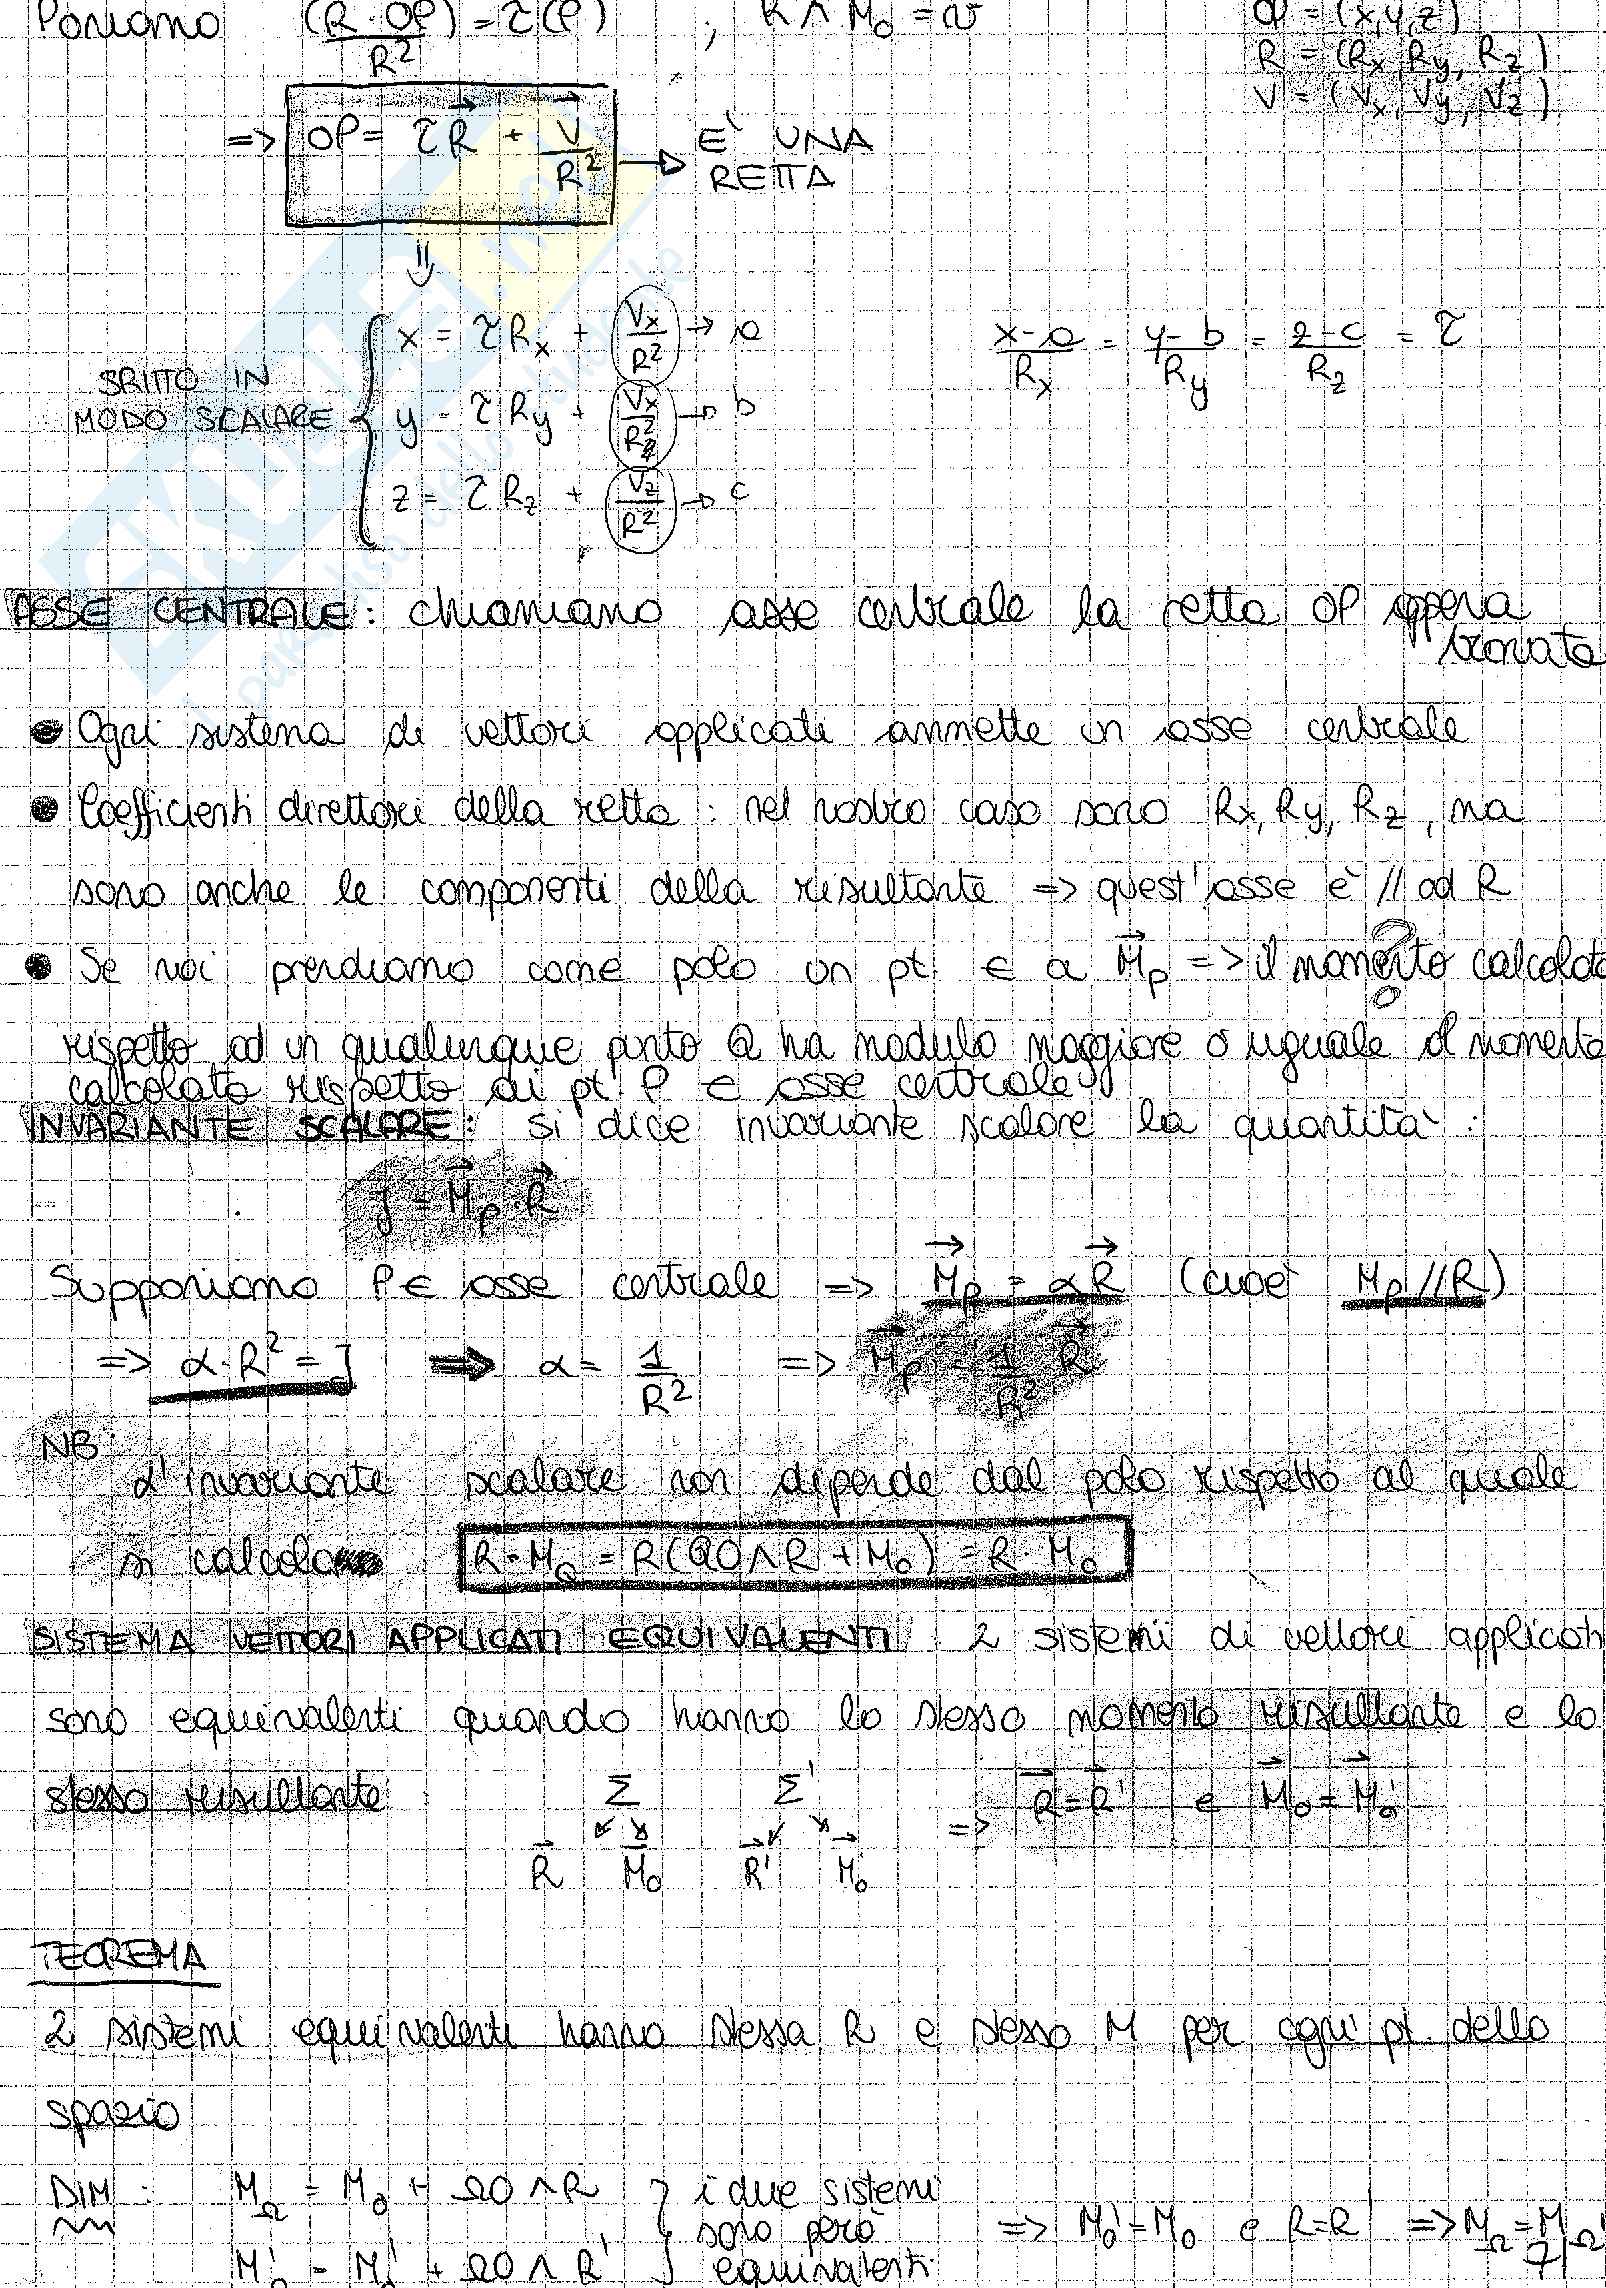 Poniamo (R · OP)/R² = τ(P) ; R ∧ M₀ = v
OP = (x, y, z)
R = (Rx, Ry, Rz)
V = (Vx, Vy, Vz)
=> OP = τR + V/R² → E' UNA RETTA
SRITTO IN MODO SCALARE
x = τRx + Vx/R² → a
y = τRy + Vx/R² → b
z = τRz + Vz/R² → c
x-a/Rx = y-b/Ry = z-c/Rz = τ
ASSE CENTRALE: chiamiamo asse centrale la retta OP appena
trovata
• Ogni sistema di vettori applicati ammette un asse centrale
• Coefficienti direttori della retta: nel nostro caso sono Rx, Ry, Rz, ma
sono anche le componenti della risultante => quest'asse è // ad R
• Se noi prendiamo come polo un pt. ∈ a Mp => il momento calcolato
?
rispetto ad un qualunque punto Q ha modulo maggiore o uguale al momento
calcolato rispetto ai pt P ∈ asse centrale
INVARIANTE SCALARE: si dice invariante scalare la quantità:
J = Mp · R
Supponiamo P ∈ asse centrale => Mp = αR (cioè Mp // R)
=> α·R² = J => α = 1/R² => Mp = 1/R² R
NB:
L'invariante scalare non dipende dal polo rispetto al quale
si calcola R · M_Q = R(QO ∧ R + M₀) = R · M₀
SISTEMA VETTORI APPLICATI EQUIVALENTI: 2 sistemi di vettori applicati
sono equivalenti quando hanno lo stesso momento risultante e lo
stesso risultante: Σ Σ' => R = R' e M₀ = M₀'
R M₀ R' M₀
TEOREMA
2 sistemi equivalenti hanno stessa R e stesso M per ogni pt. dello
spazio
DIM: M_Ω = M₀ + ΩO ∧ R } i due sistemi
sono però => M₀' = M₀ e R = R' => M_Ω = M_Ω'
M'_Ω = M₀' + ΩO ∧ R' } equivalenti
7